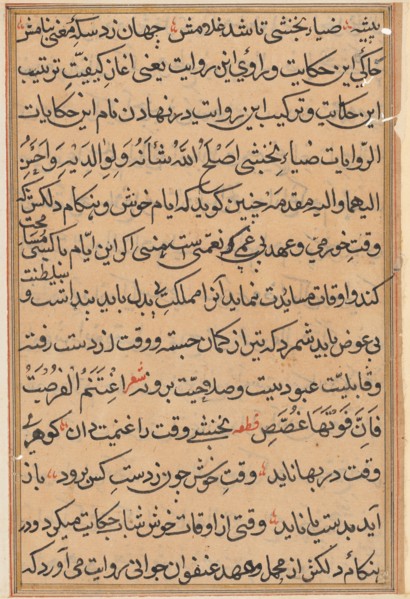 بیشه ضیاء نخشبی تا شد غلامش جهان زد سکه معنی بنامش
حاکی این حکایت و راوی این روایت یعنی اغاز کیفیت ترتیب
این حکایت و ترکیب این روایت در نهادن نام این حکایات
الروایات ضیاء نخشبی اصلح الله شانه و لوالدیه واحسن
الیهما والیه مقدمه چنین کوید که ایام خوش و هنکام دلکش که
وقت خورمی و عهد بی غمی کو نعمتی ست هنی اکر این ایام با کسی
کند و اوقات مساعدت نماید آنرا مملکت بی بدل باید پنداشت و سلطنت
بی عوض باید شمرد که تیر از کمان جسته و وقت از دست رفته
و قابلیت عبودیت و صلاحیت برو نه شعر اغتنم الفرصت
فان فوتها غصص قطعه نخشبی وقت را غنیمت دان کوهری
وقت در بها ناید وقت خوش چون ز دست کس برود باز
آید بدست یا ناید وقتی از اوقات خوش شاب حکایت میکرد و در
هنکام دلکش از مجمل و عهد عنفوان جوانی روایت می آورد که